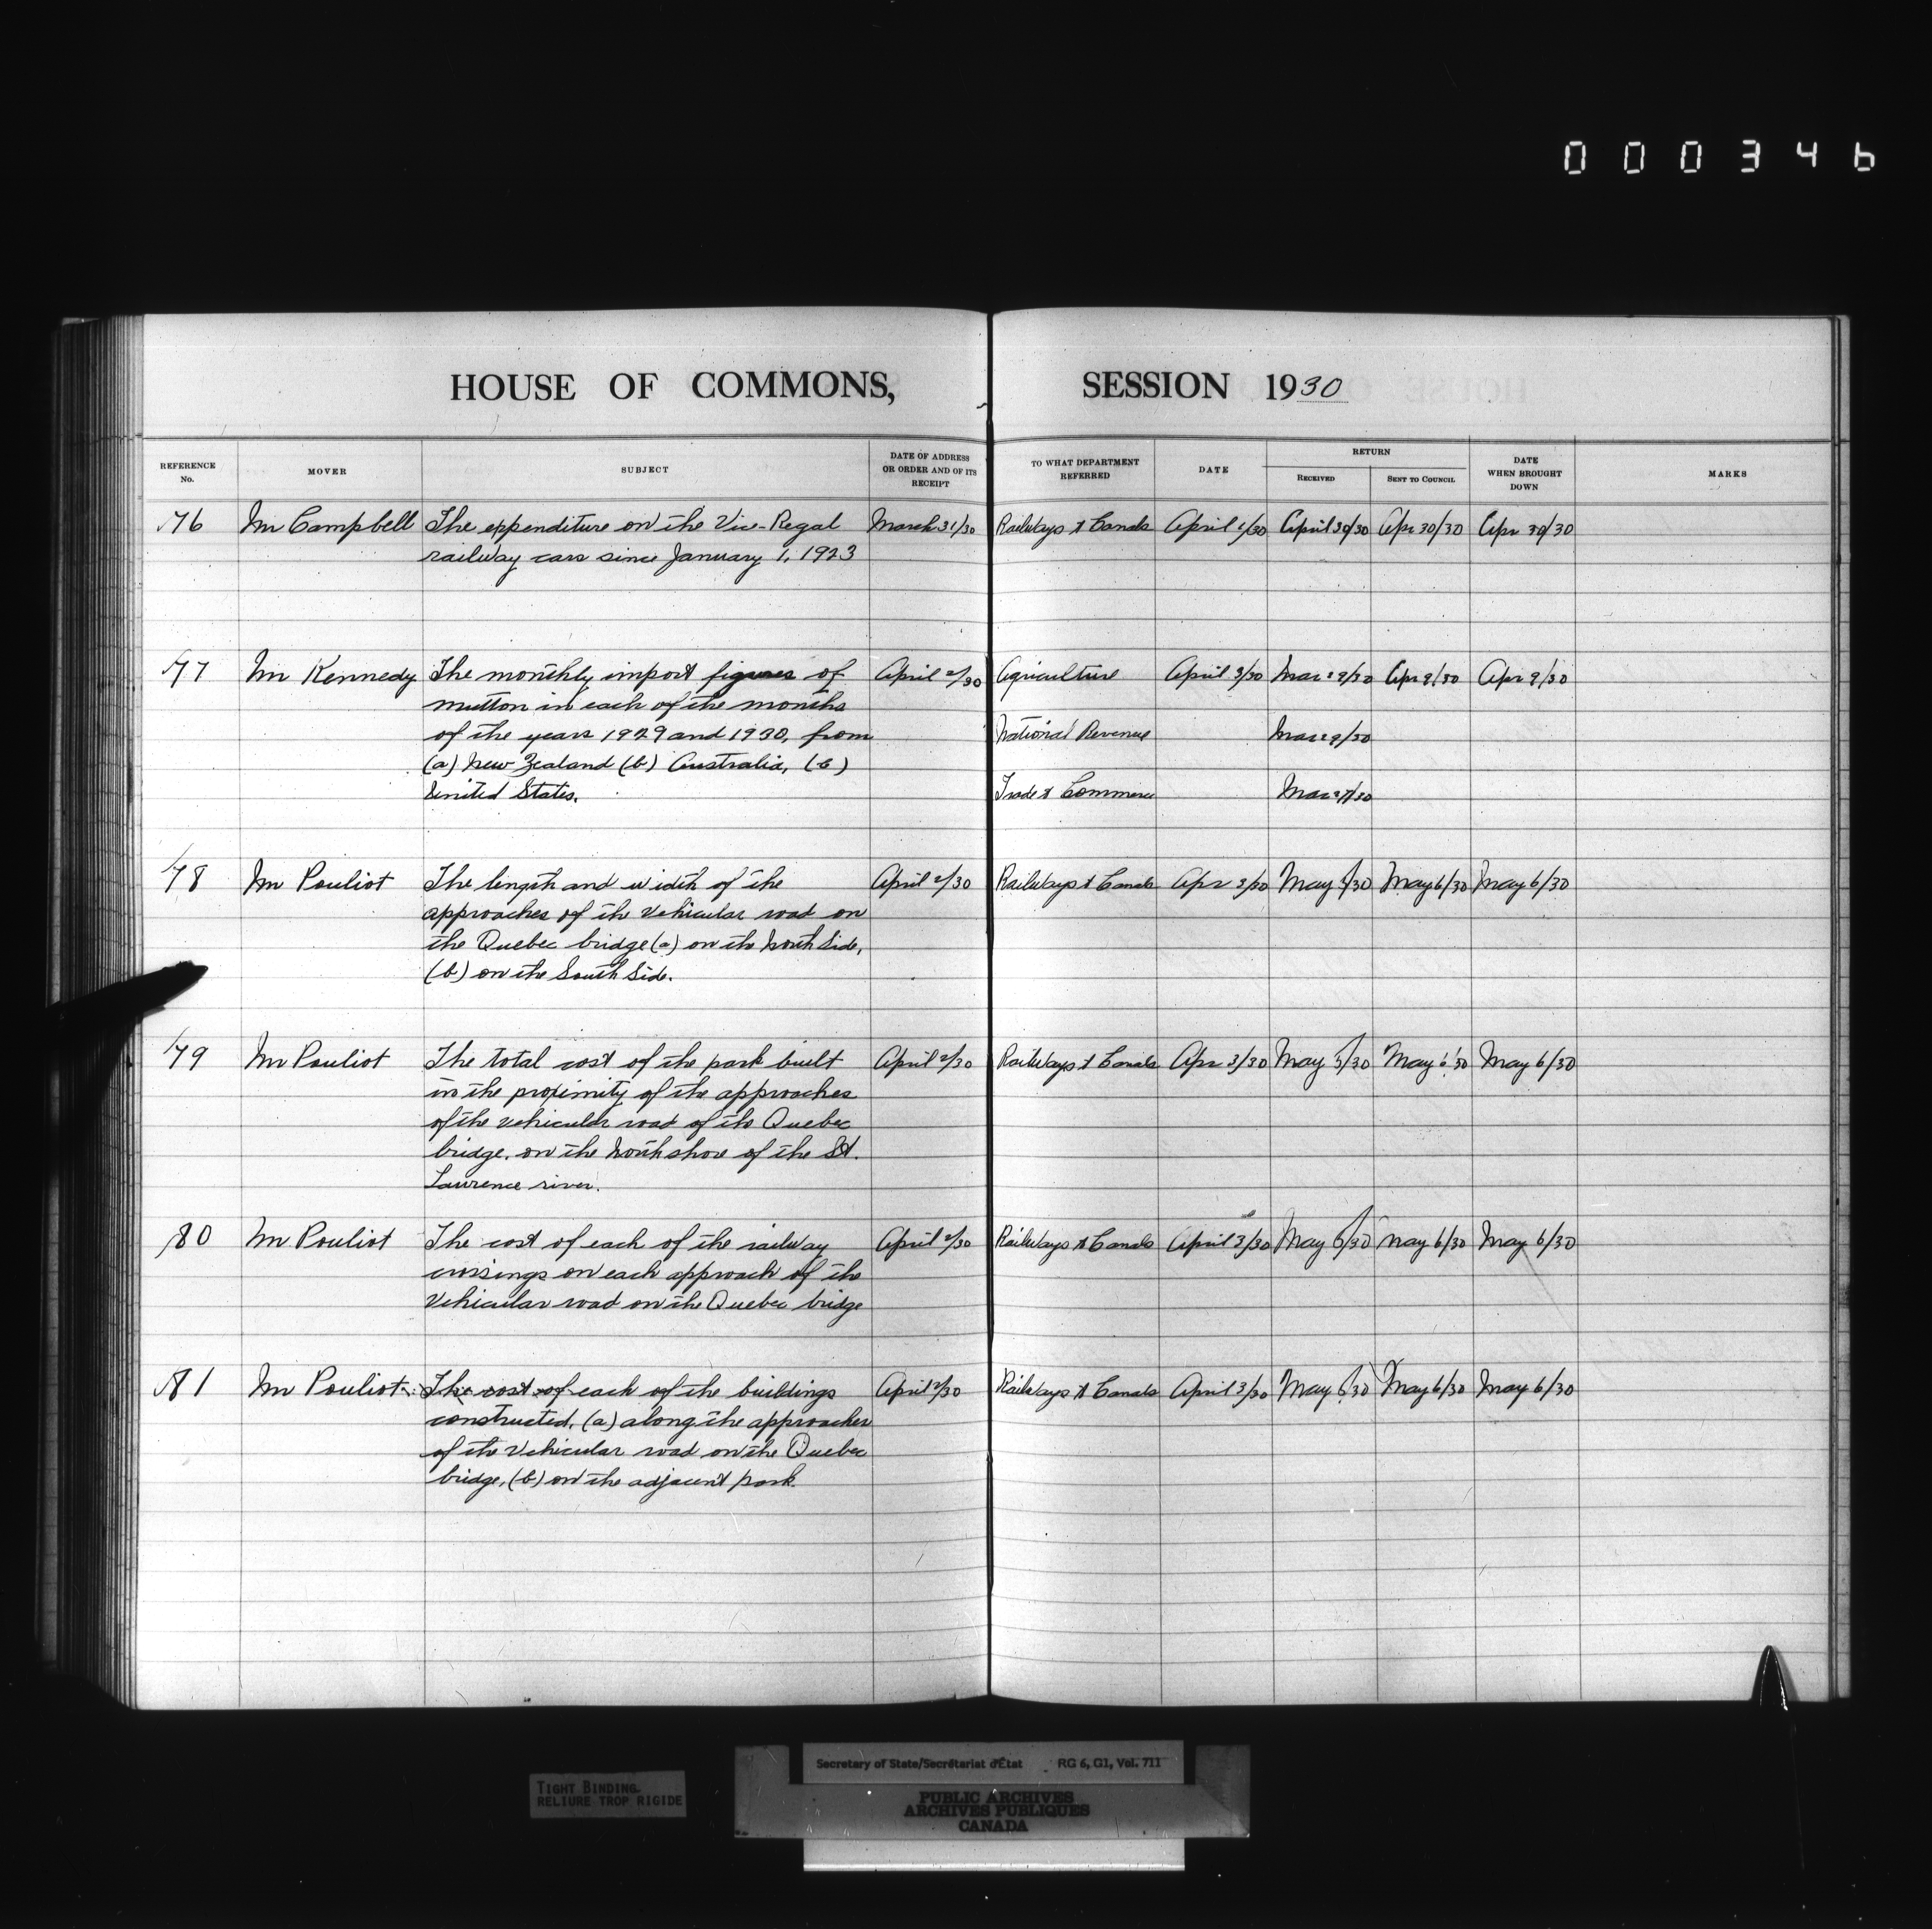 000346
HOUSE OF COMMONS, SESSION 1930
REFERENCE No. MOVER SUBJECT DATE OF ADDRESS OR ORDER AND OF ITS RECEIPT TO WHAT DEPARTMENT REFERRED DATE RETURN RECEIVED SENT TO COUNCIL DATE WHEN BROUGHT DOWN MARKS
76 Mr Campbell The expenditure on the Vice-Regal March 31/30 Railways & Canals April 1/30 April 30/30 Apr 30/30 Apr 30/30
railway cars since January 1, 1923
77 Mr Kennedy The monthly import figures of April 2/30 Agriculture April 3/30 Mar 29/30 Apr 9/30 Apr 9/30
mutton in each of the months
of the years 1929 and 1930, from National Revenue Mar 29/30
(a) New Zealand (b) Australia, (c)
United States. Trade & Commerce Mar 27/30
78 Mr Pouliot The length and width of the April 2/30 Railways & Canals Apr 3/30 May 5/30 May 6/30 May 6/30
approaches of the vehicular road on
the Quebec bridge (a) on the North Side,
(b) on the South Side.
79 Mr Pouliot The total cost of the park built April 2/30 Railways & Canals Apr 3/30 May 5/30 May 6/30 May 6/30
in the proximity of the approaches
of the vehicular road of the Quebec
bridge, on the North shore of the St.
Lawrence river.
80 Mr Pouliot The cost of each of the railway April 2/30 Railways & Canals April 3/30 May 5/30 May 6/30 May 6/30
crossings on each approach of the
Vehicular road on the Quebec bridge
81 Mr Pouliot The cost of each of the buildings April 2/30 Railways & Canals April 3/30 May 5/30 May 6/30 May 6/30
constructed, (a) along the approaches
of the Vehicular road on the Quebec
bridge, (b) on the adjacent park.
Secretary of State/Secrétariat d'État RG 6, G1, Vol. 711
TIGHT BINDING
RELIURE TROP RIGIDE
PUBLIC ARCHIVES
ARCHIVES PUBLIQUES
CANADA